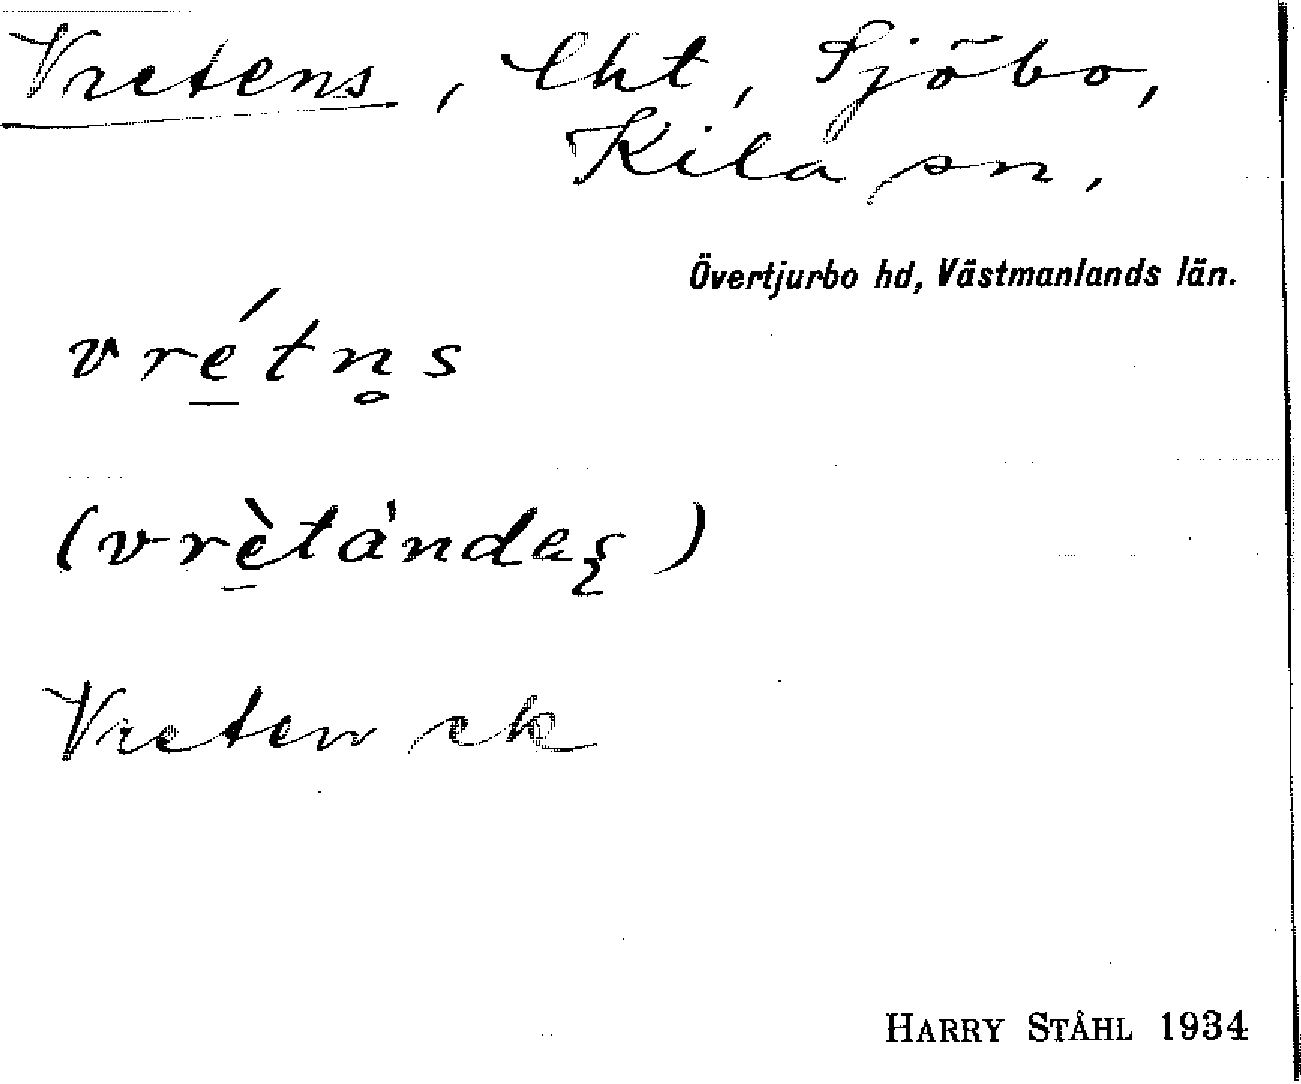 Vretens, lht, Sjöbo,
Kila sn.
Övertjurbo hd, Västmanlands län.
vré̲tn̥s
(vrè̲tàndaς)
Vreten ek
HARRY STÅHL 1934